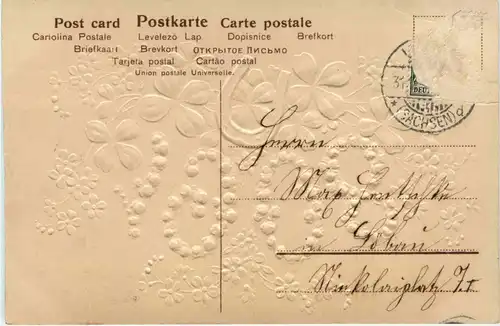 Post card Postkarte Carte postale
Cartolina Postale Levelező Lap. Dopisnice Brefkort
Briefkaart Brevkort ОТКРЫТОЕ ПИСЬМО
Tarjeta postal Cartão postal
Union postale Universelle.
(SACHSEN)
Herrn
Max
in Löbau
Nicolaiplatz